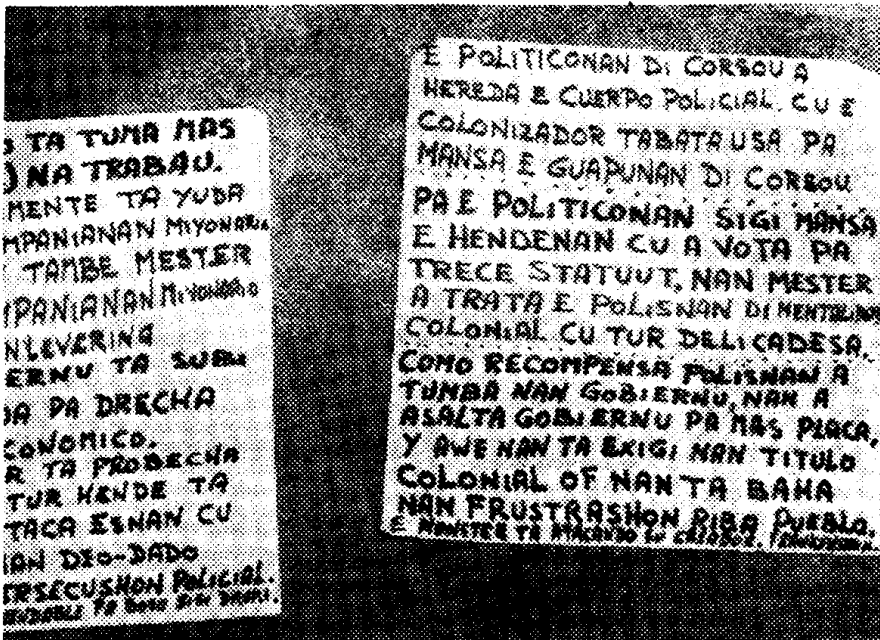 TA TUMA MAS
NA TRABAU.
MENTE TA YUDA
MPANIANAN MIYONARIO
TAMBE MESTER
MPANIANAN MIYONARIO
NLEVERING
ERNU TA SUBI
DA PA DRECHA
CONOMICO.
R TA PROBECHA
TUR HENDE TA
TACA ESNAN CU
AN DIO-DADO
ERSECUSHON POLICIAL.
E POLITICONAN DI CORSOU A
HEREDA E CUERPO POLICIAL, CU E
COLONIZADOR TABATA USA PA
MANSA E GUAPUNAN DI CORSOU
PA E POLITICONAN SIGI MANSA
E HENDENAN CU A VOTA PA
TRECE STATUUT, NAN MESTER
A TRATA E POLISNAN DI
COLONIAL CU TUR DELICADESA.
COMO RECOMPENSA POLISNAN A
TUMBA NAN GOBIERNU, NAN A
ASALTA GOBIERNU PA MAS PLACA,
Y AWE NAN TA EXIGI NAN TITULO
COLONIAL OF NAN TA BAHA
NAN FRUSTRASHON RIBA PUEBLO.
E MONSTER TA ATACANDO SU CREADOR.